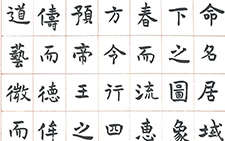 命名居域
下之圖象
春而流恵
方令行四
預帝王之
儔而德侔
道藝微而